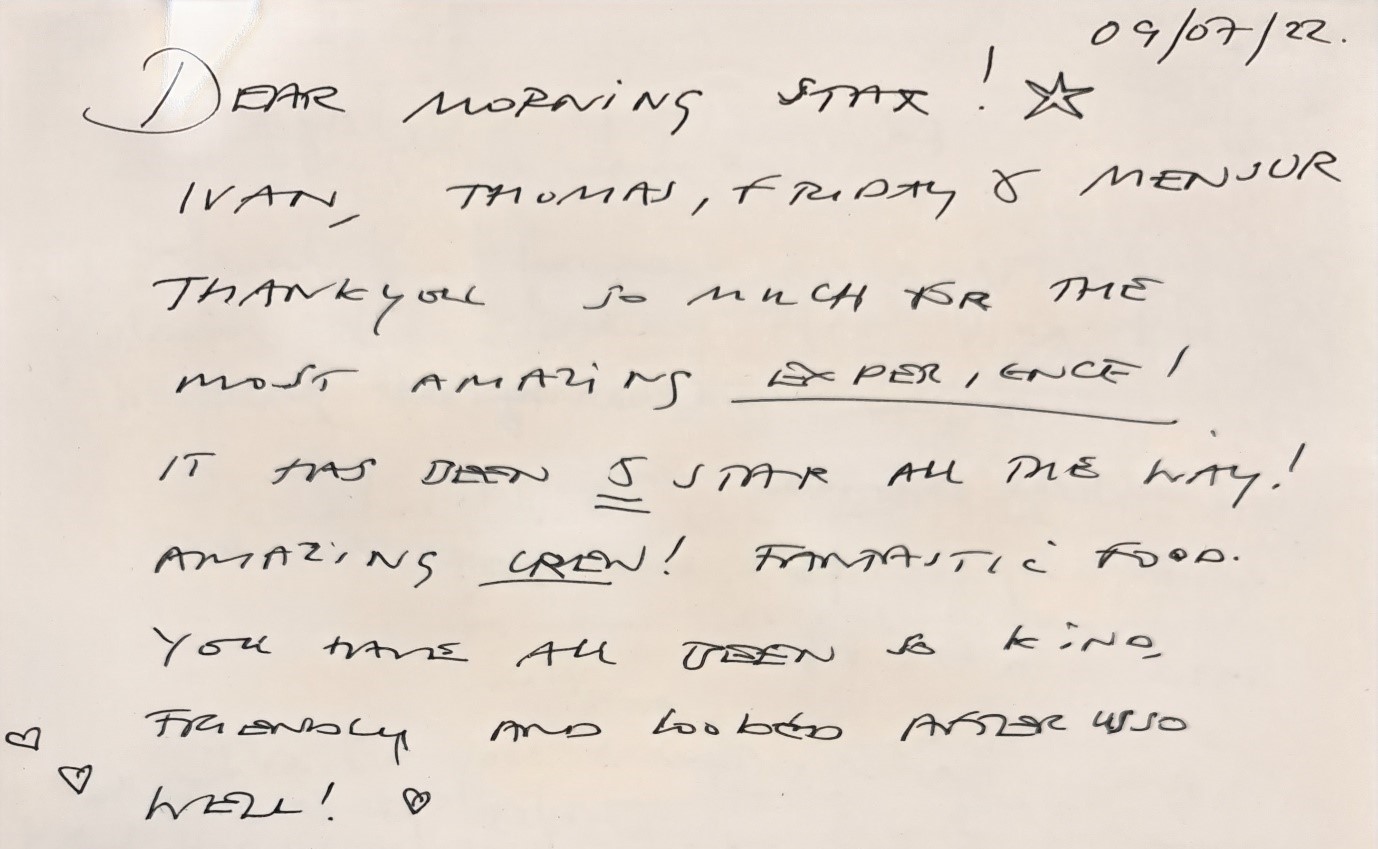 09/07/22.
DEAR MORNING STAR! ☆
IVAN, THOMAS, FRIDAY & MENSUR
THANKYOU SO MUCH FOR THE
MOST AMAZING EXPERIENCE!
IT HAS BEEN 5 STAR ALL THE WAY!
AMAZING CREW! FANTASTIC FOOD.
YOU HAVE ALL BEEN SO KIND,
FRIENDLY AND LOOKED AFTER US SO
WELL! ♡